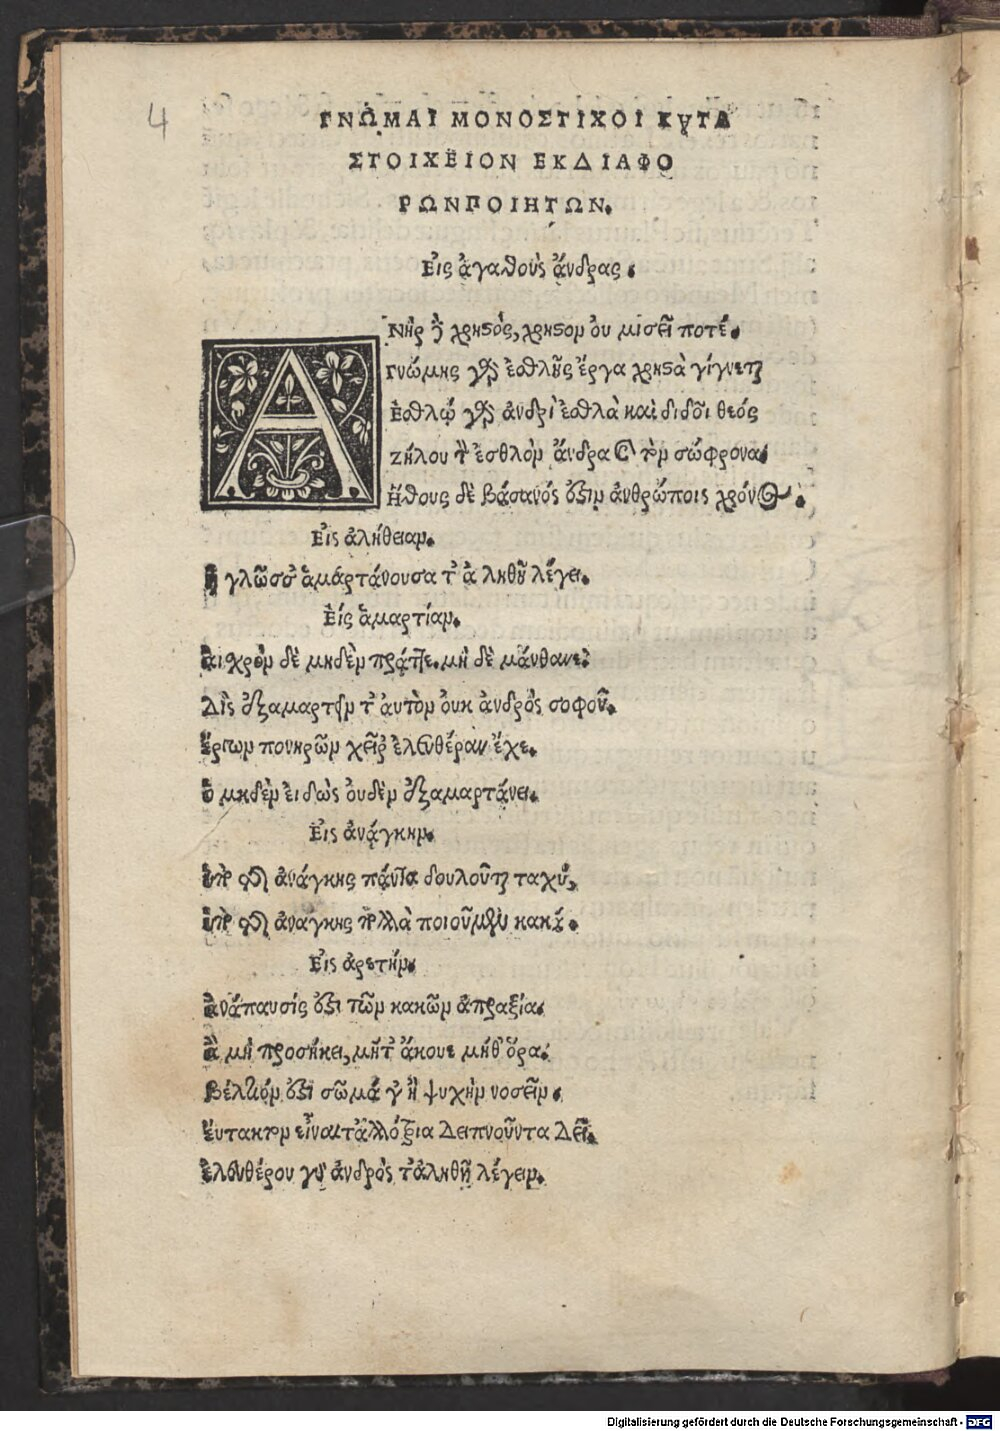 4
ΓΝΩΜΑΙ ΜΟΝΟΣΤΙΧΟΙ ΚΥΤΑ
ΣΤΟΙΧΕΙΟΝ ΕΚΔΙΑΦΟ
ΡΩΝΠΟΙΗΤΩΝ.
Εἰς ἀγαθοὺς ἄνδρας.
ΑΝὴρ ὃ χρηστὸς, χρηστὸν ὀυ μισεῖ ποτέ.
Γνώμης γὰρ ἐσθλῆς ἔργα χρηστὰ γίγνεται
Ἐσθλῷ γὰρ ἀνδρὶ ἐσθλὰ καὶ διδοῖ θεός
Ζήλου τὸν ἐσθλὸν ἄνδρα καὶ τὸν σώφρονα.
Ἤθους δὲ βάσανός ἐστιν ἀνθρώποις χρόνος.
Εἰς ἀλήθειαν.
Ἡ γλῶσσ' ἁμαρτάνουσα τ' ἀληθῆ λέγει.
Εἰς ἁμαρτίαν.
Αἰσχρὸν δὲ μηδὲν πράττε. μὴ δὲ μάνθανε.
Δὶς ἐξαμαρτεῖν τ' ἀυτὸν ὀυκ ἀνδρὸς σοφοῦ.
Ἔργων πονηρῶν χεῖρ' ἐλευθέραν ἔχε.
Ὁ μηδὲν εἰδὼς ὀυδὲν ἐξαμαρτάνει.
Εἰς ἀνάγκην.
Ὑπὸ τῆς ἀνάγκης πάντα δουλοῦται ταχύ,
Ὑπὸ τῆς ἀναγκης πολλὰ ποιοῦμεν κακά.
Εἰς ἀρετήν.
Ἀνάπαυσίς ἐστι τῶν κακῶν ἀπραξία.
Ἃ μὴ προσήκει, μήτ' ἄκουε μήθ' ὅρα.
Βέλτιόν ἐστι σῶμά γ' ἢ ψυχὴν νοσεῖν.
Ἔυτακτον εἶναι τἀλλότρια Δειπνοῦντα Δεῖ.
Ἐλευθέρου γὰρ ἀνδρὸς τἀληθῆ λέγειν.
Digitalisierung gefördert durch die Deutsche Forschungsgemeinschaft - DFG